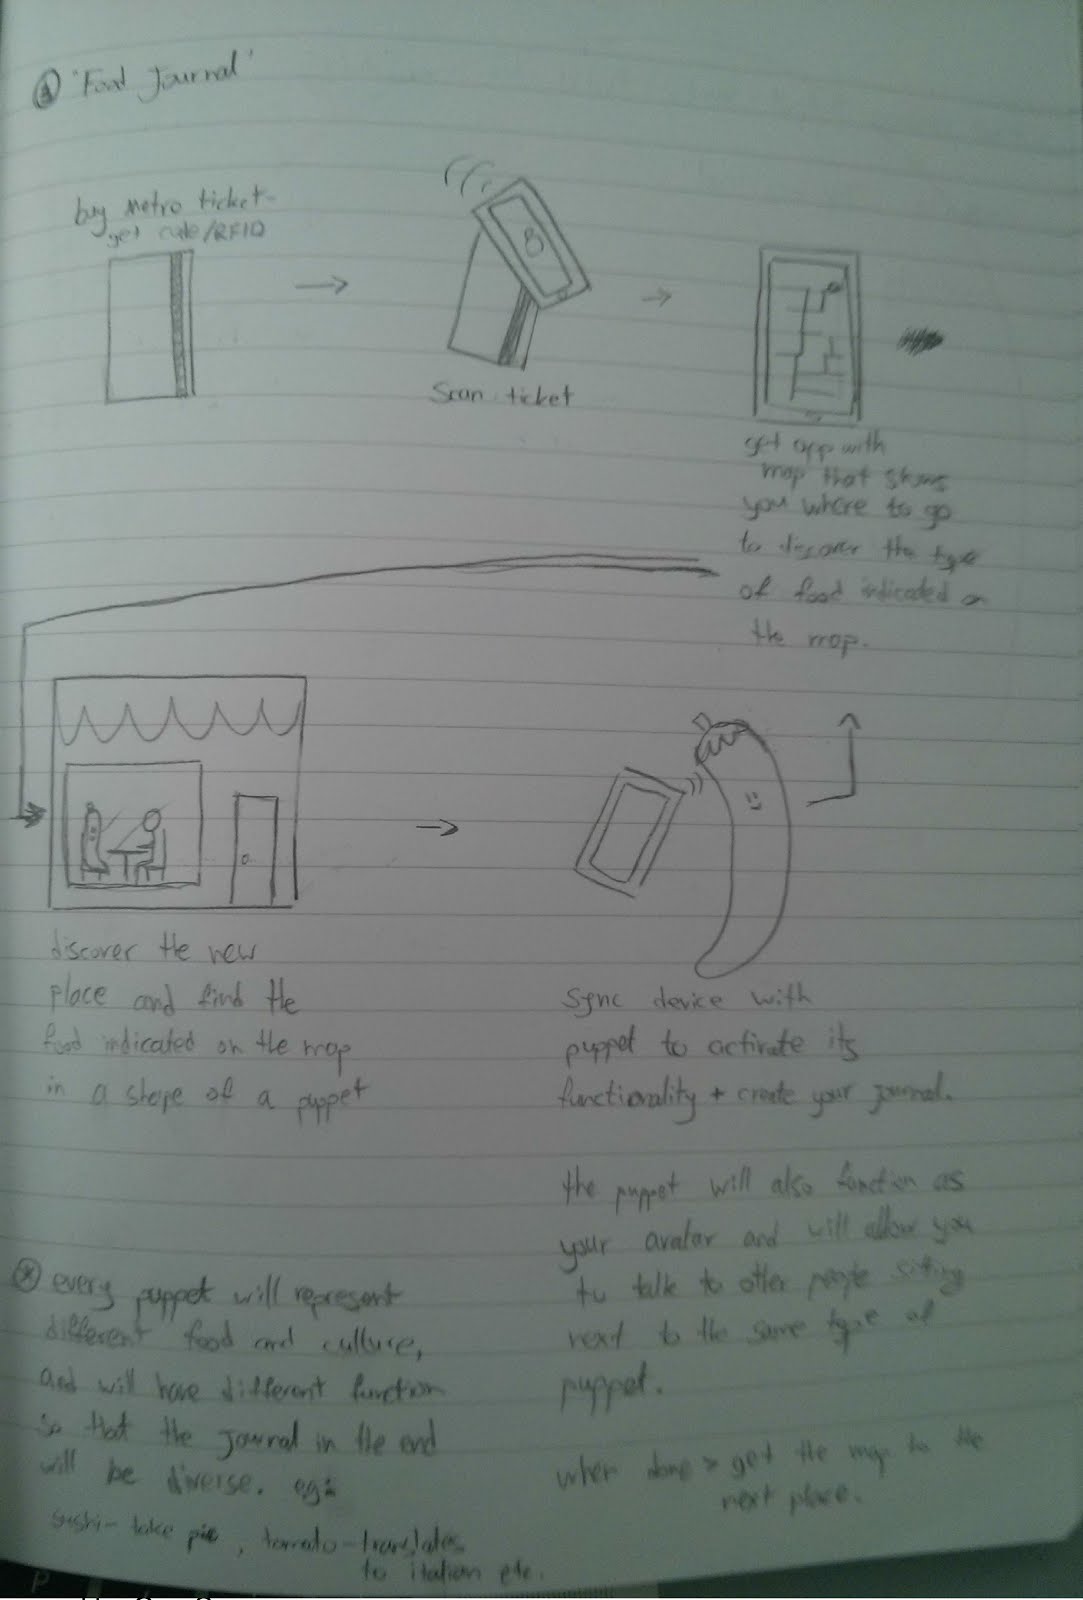 Ⓐ 'Food Journal'
buy Metro ticket -
get code/RFID
Scan ticket
get app with
map that shows
you where to go
to discover the type
of food indicated on
the map.
discover the new
place and find the
food indicated on the map
in a shape of a puppet
Sync device with
puppet to activate its
functionality + create your journal.
the puppet will also function as
your avatar and will allow you
to talk to other people sitting
next to the same type of
puppet.
when done > get the map to the
next place.
⊛ every puppet will represent
different food and culture,
and will have different function
so that the journal in the end
will be diverse. eg:
sushi - take pic, tomato - translates
to italian etc.